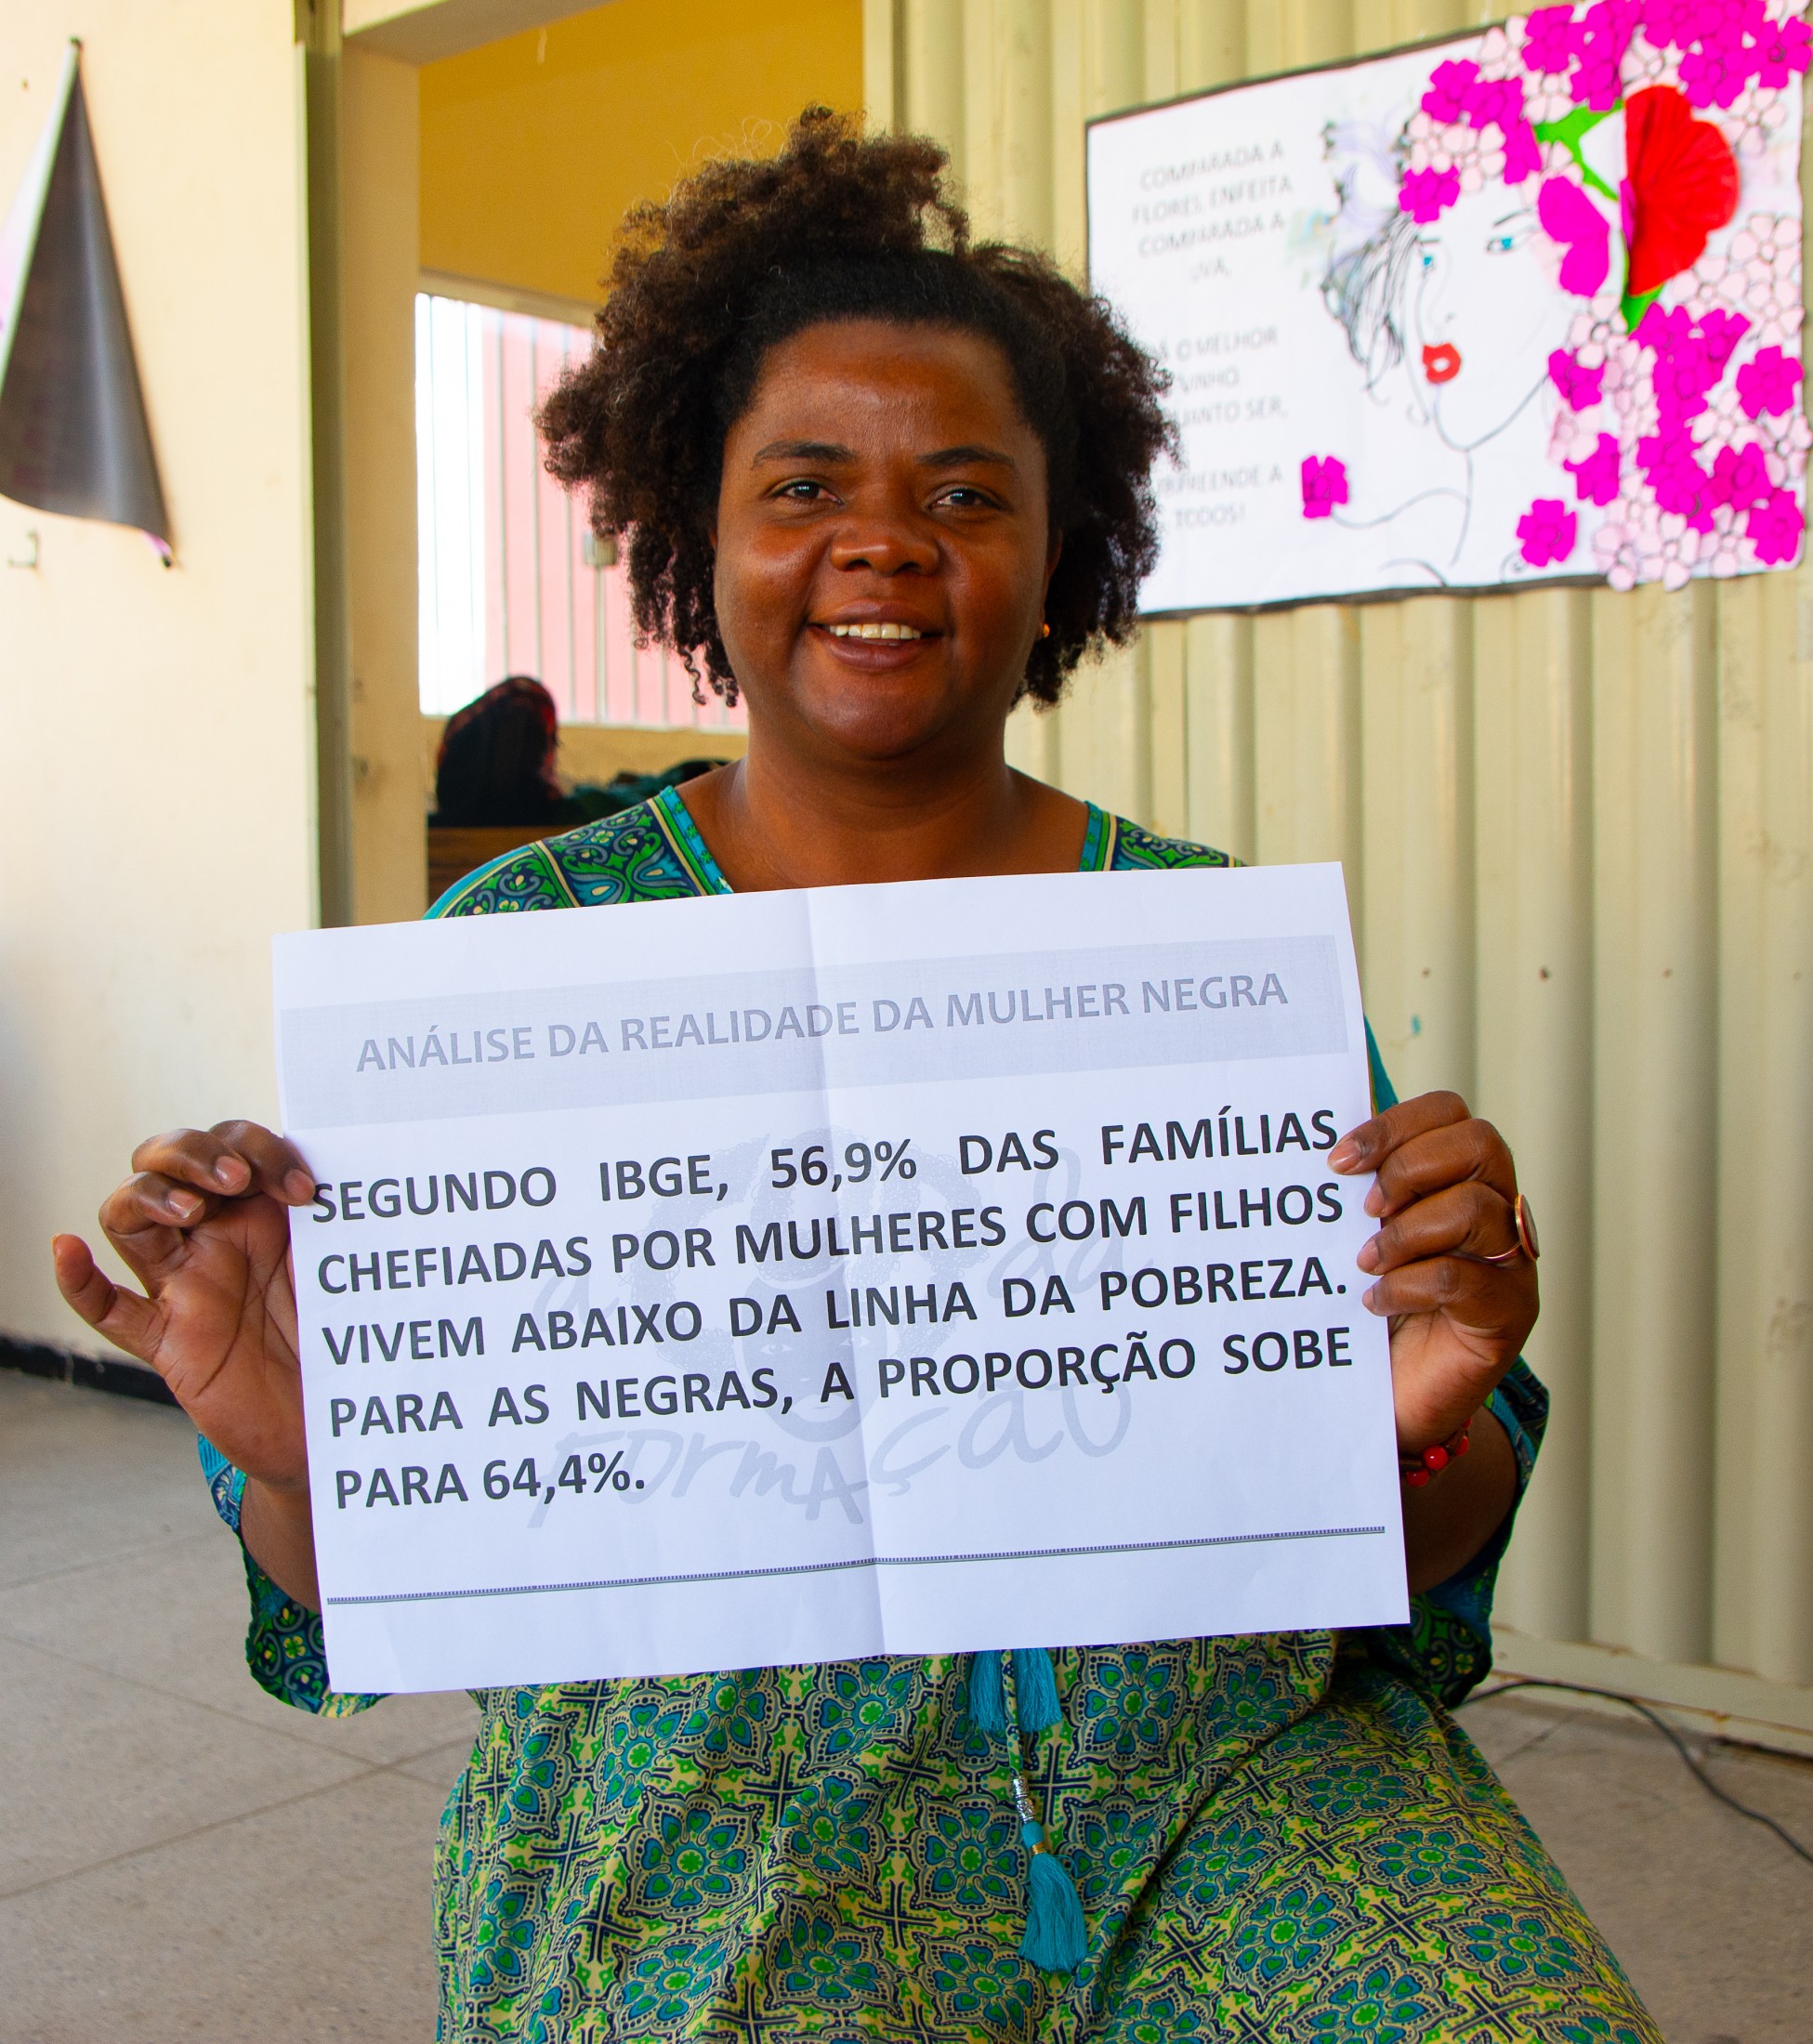 COMPARADA A
FLORES, ENFEITA
COMPARADA A
UVA,
O MELHOR
VINHO
SER,
A
TODOS!
ANÁLISE DA REALIDADE DA MULHER NEGRA
SEGUNDO IBGE, 56,9% DAS FAMÍLIAS
CHEFIADAS POR MULHERES COM FILHOS
VIVEM ABAIXO DA LINHA DA POBREZA.
PARA AS NEGRAS, A PROPORÇÃO SOBE
PARA 64,4%.
FORMAÇÃO